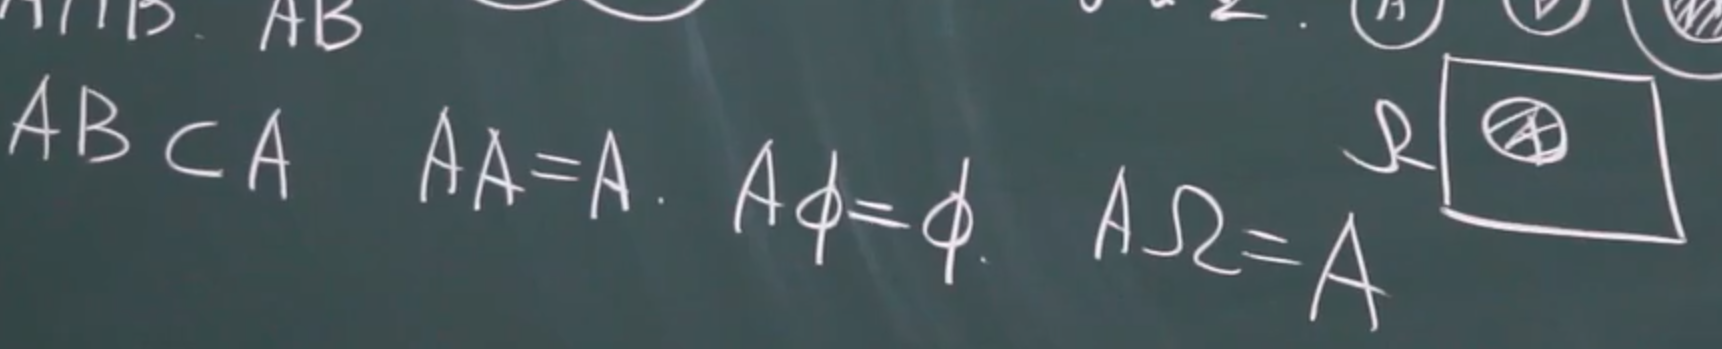 A∩B. AB
AB ⊂ A  AA=A.  Aφ=φ.  AΩ=A
Ω A